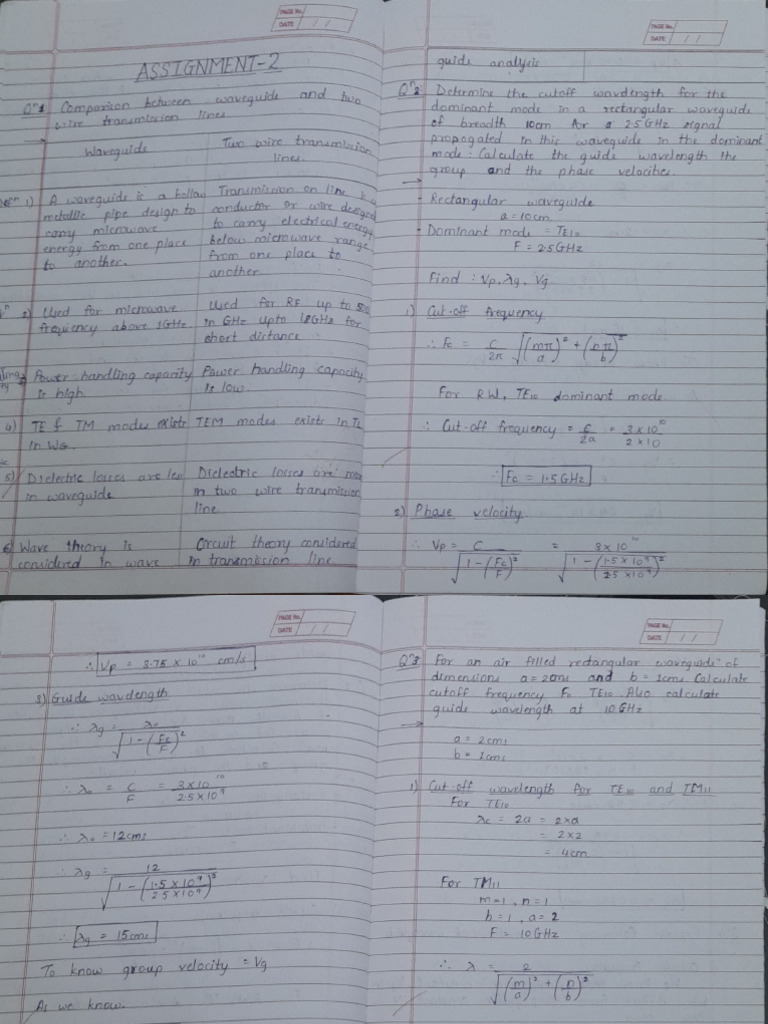 PAGE No.
DATE / /
ASSIGNMENT-2
Qⁿ1 Comparison between waveguide and two
wire transmission lines.
→ Waveguide | Two wire transmission
lines.
1) A waveguide is a hollow | Transmission on line is a
metallic pipe design to | conductor or wire designed
carry microwave | to carry electrical energy
energy from one place | below microwave range
to another. | from one place to
another
2) Used for microwave | Used for RF up to
frequency above 1GHz | in GHz upto 18GHz for
short distance
Power handling capacity | Power handling capacity
is high. | is low.
4) TE & TM modes exists | TEM modes exists in TL
in WG.
5) Dielectric losses are less | Dielectric losses are more
in waveguide | in two wire transmission
line
6) Wave theory is | Circuit theory considered
considered in wave | in transmission line
PAGE No.
DATE / /
guide analysis
Qⁿ2 Determine the cutoff wavelength for the
dominant mode in a rectangular waveguide
of breadth 10cm for a 2.5GHz signal
propogated in this waveguide in the dominant
mode. Calculate the guide wavelength the
group and the phase velocities.
→
- Rectangular waveguide
a = 10cm
- Dominant mode = TE10
F = 2.5GHz
Find : Vp, λg, Vg
1) Cut-off frequency
∴ Fc = c/2π √((mπ/a)² + (nπ/b)²)
For RW, TE10 dominant mode
∴ Cut-off frequency = c/2a = 3 x 10¹⁰/2 x 10
∴ Fc = 1.5GHz
2) Phase velocity
∴ Vp = c/√(1 - (Fc/F)²) = 3 x 10¹⁰/√(1 - (1.5 x 10⁹/2.5 x 10⁹)²)
PAGE No.
DATE / /
∴ Vp = 3.75 x 10¹⁰ cm/s
3) Guide wavelength
∴ λg = λo/√(1 - (Fc/F)²)
∴ λo = C/F = 3 x 10¹⁰/2.5 x 10⁹
∴ λo = 12cms
∴ λg = 12/√(1 - (1.5 x 10⁹/2.5 x 10⁹)²)
∴ λg = 15cms
To know group velocity = Vg
As we know.
PAGE No.
DATE / /
Qⁿ3 For an air filled rectangular waveguide of
dimensions a = 2cms and b = 1cms Calculate
cutoff frequency Fo TE10. Also calculate
guide wavelength at 10GHz
→
a = 2cms
b = 1cms
1) Cut-off wavelength for TE10 and TM11
For TE10
λc = 2a = 2xa
= 2x2
= 4cm
For TM11
m=1, n=1
b=1, a=2
F = 10GHz
∴ λ = 2/√((m/a)² + (n/b)²)